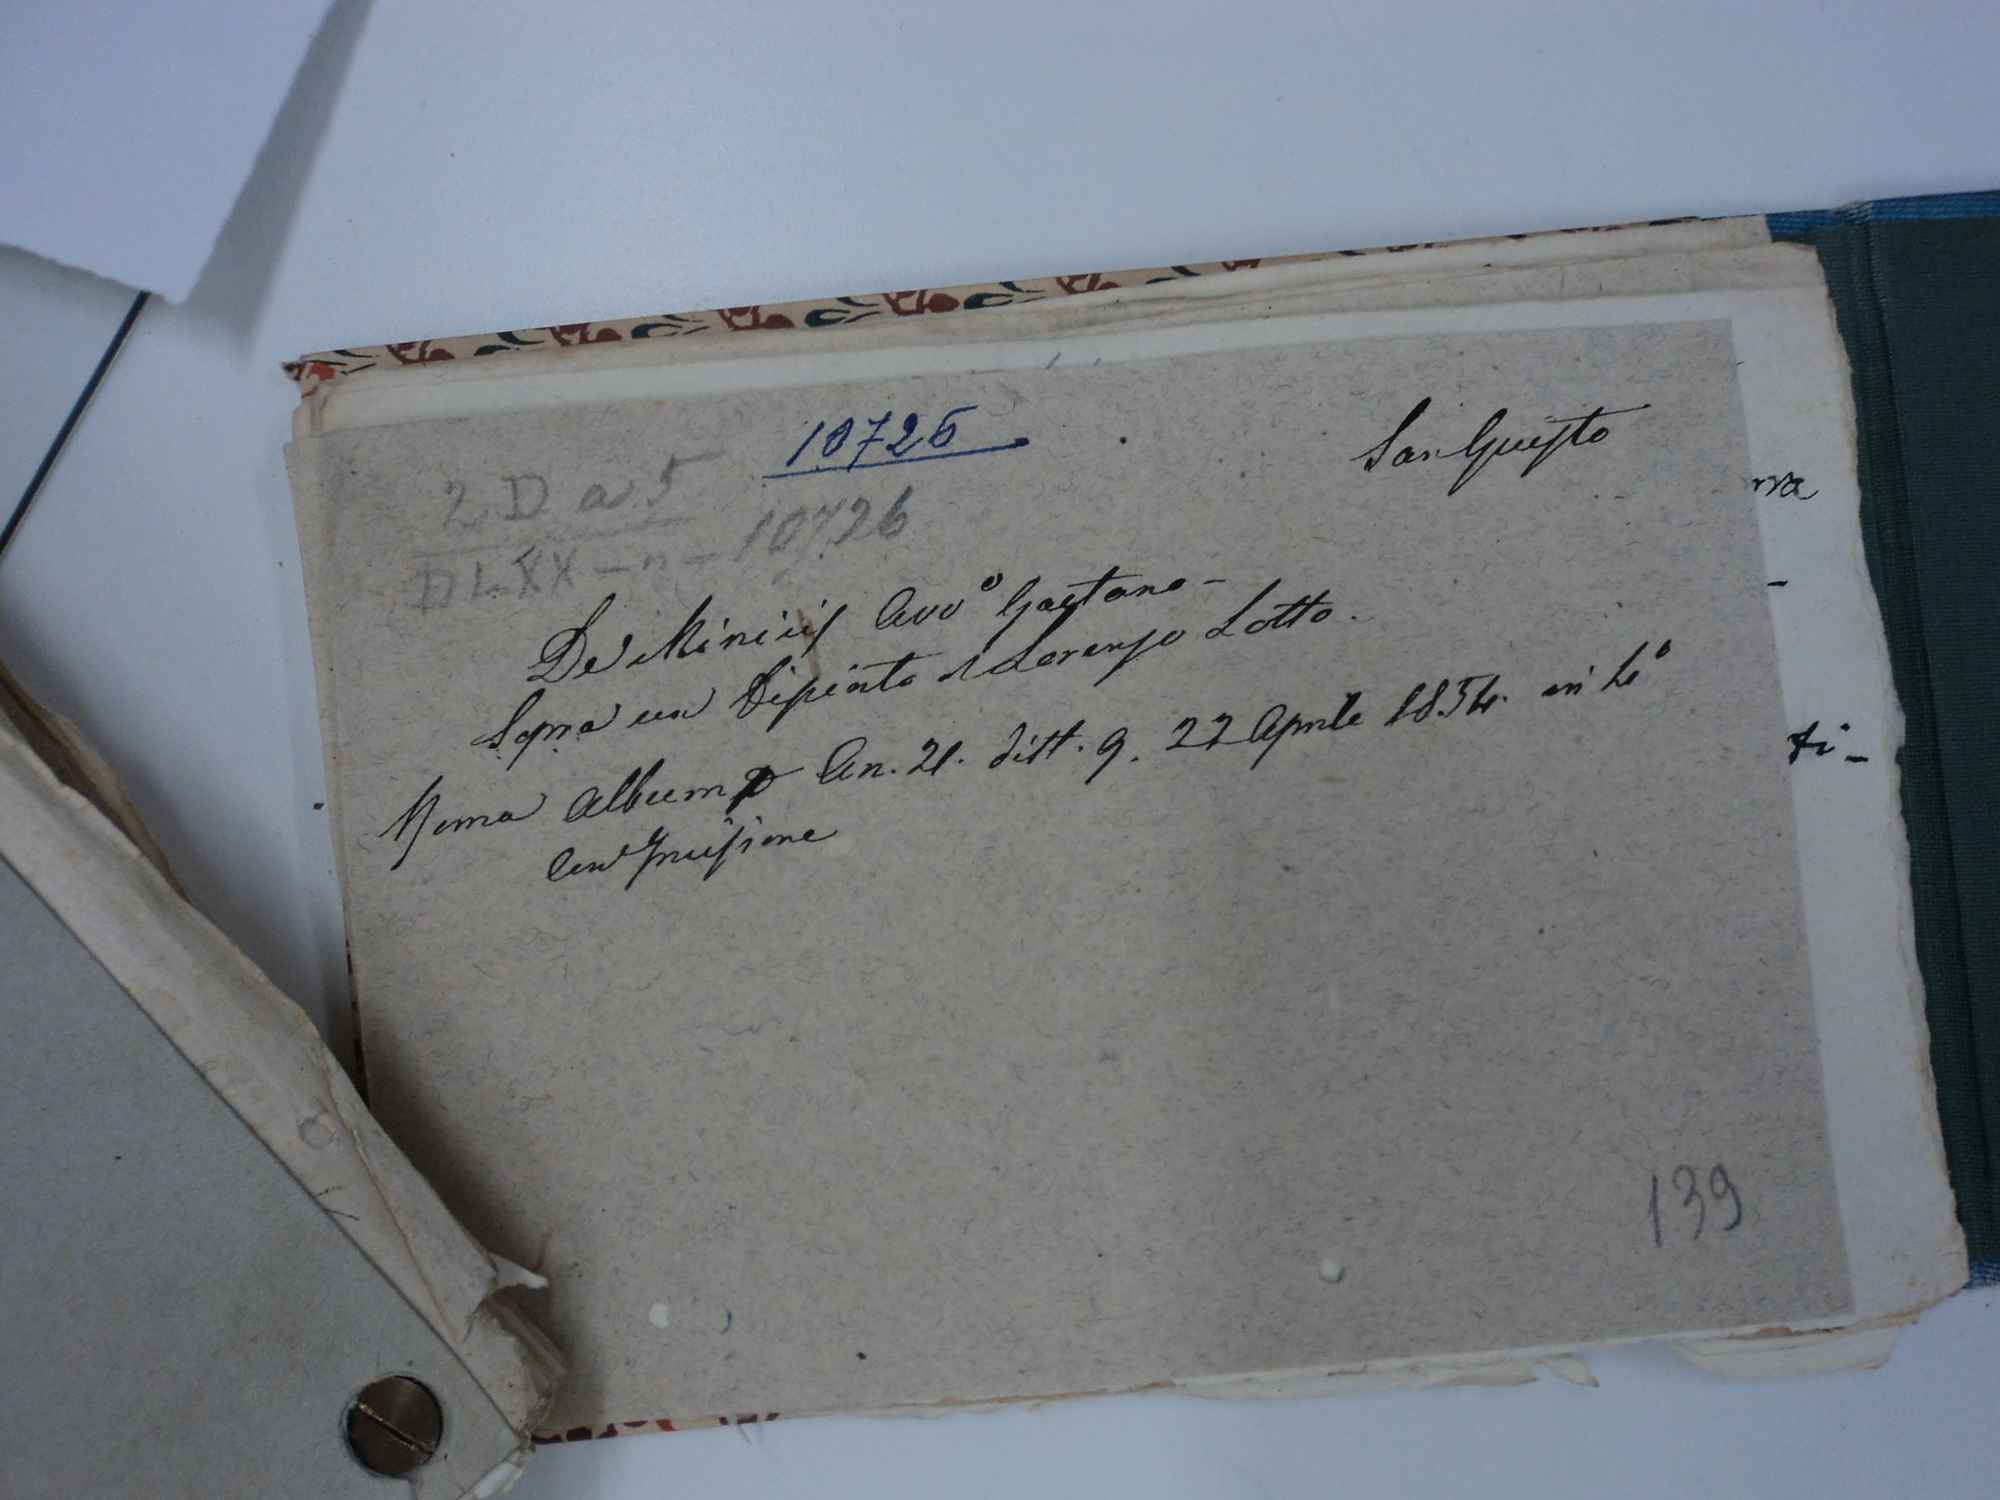 10726
San Giusto
2 D a 5
DLXX - n - 10726
De Minicis Avvº Gaetano -
Sopra un Dipinto di Lorenzo Lotto.
Roma Album An. 21. dist. 9. 22 Aprile 1854. in 4º
Con Incisione
139